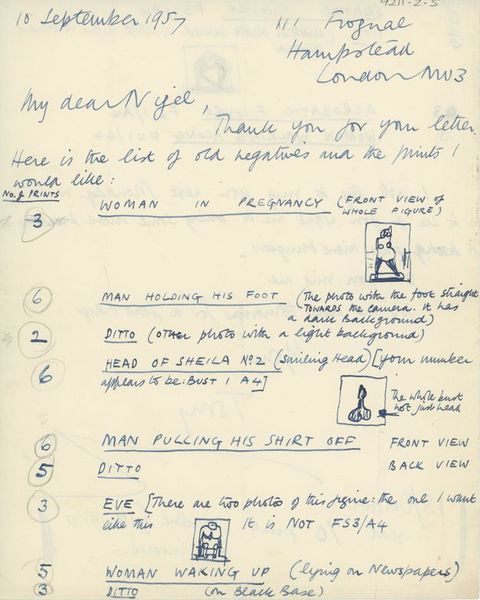 9211-2-5
10 September 1957
111 Frognal
Hampstead
London NW3
My dear Nigel,
Thank you for your letter.
Here is the list of old negatives and the prints I
would like:
No. of PRINTS
3 WOMAN IN PREGNANCY (FRONT VIEW of
WHOLE FIGURE)
6 MAN HOLDING HIS FOOT (The photo with the foot straight
TOWARDS the camera. It has
a dark Background)
2 DITTO (OTHER photo with a light background)
6 HEAD OF SHEILA No 2 (Smiling Head) [your number
appears to be: BUST 1 A4]
The whole bust
not just head
6 MAN PULLING HIS SHIRT OFF FRONT VIEW
5 DITTO BACK VIEW
3 EVE [There are two photos of this figure: the one I want
like this It is NOT FS3/A4
5 WOMAN WAKING UP (lying on Newspapers)
3 DITTO (on Black Base)